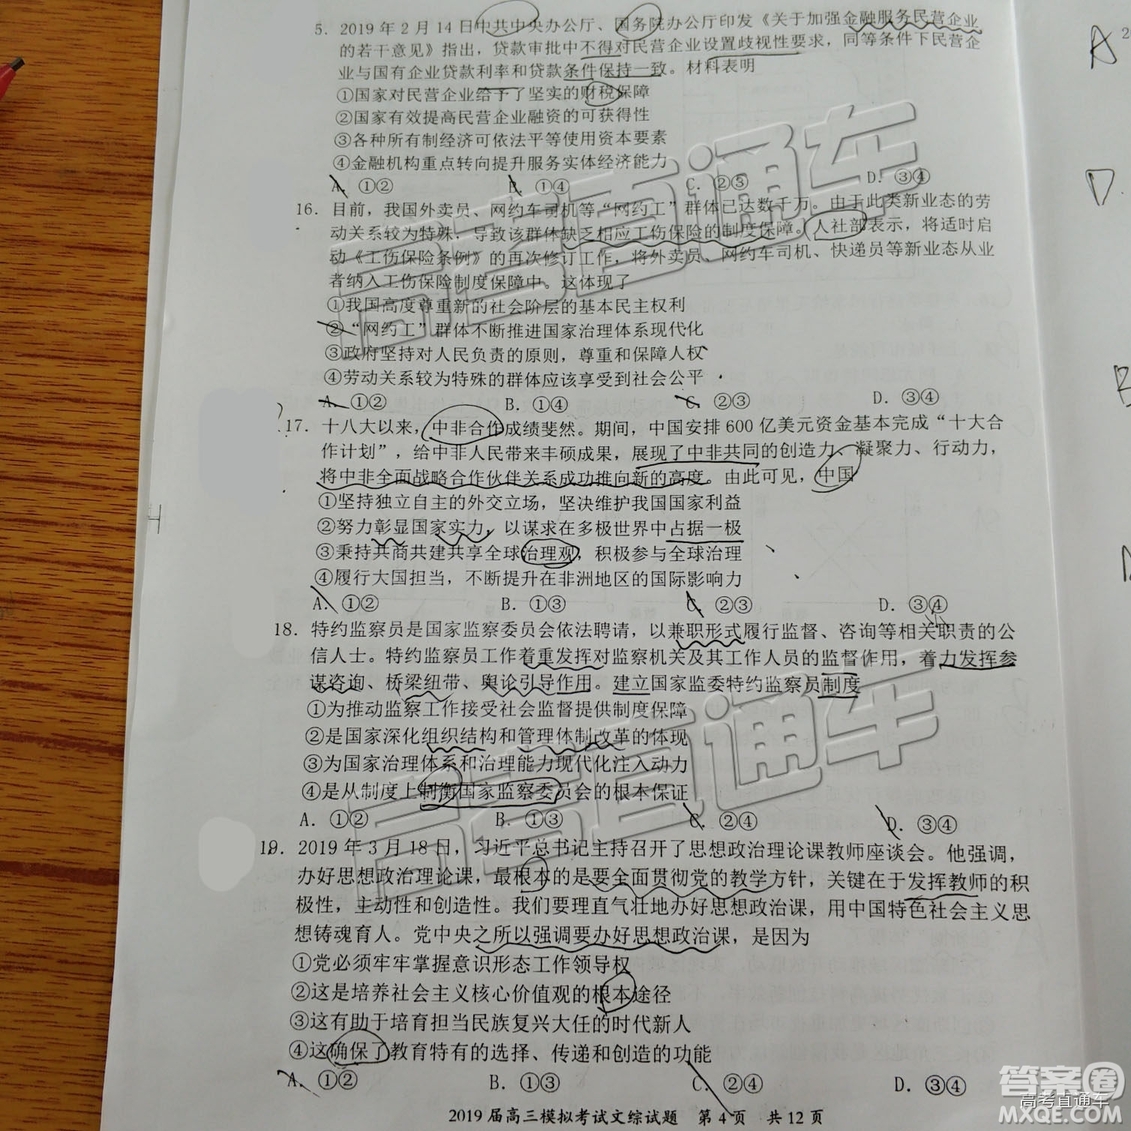 5. 2019年2月14日中共中央办公厅、国务院办公厅印发《关于加强金融服务民营企业
的若干意见》指出，贷款审批中不得对民营企业设置歧视性要求，同等条件下民营企
业与国有企业贷款利率和贷款条件保持一致。材料表明
①国家对民营企业给予了坚实的财税保障
②国家有效提高民营企业融资的可获得性
③各种所有制经济可依法平等使用资本要素
④金融机构重点转向提升服务实体经济能力
A. ①② B. ①④ C. ②⑤ D. ③④
16. 目前，我国外卖员、网约车司机等“网约工”群体已达数千万。由于此类新业态的劳
动关系较为特殊，导致该群体缺乏相应工伤保险的制度保障。人社部表示，将适时启
动《工伤保险条例》的再次修订工作，将外卖员、网约车司机、快递员等新业态从业
者纳入工伤保险制度保障中。这体现了
①我国高度尊重新的社会阶层的基本民主权利
②“网约工”群体不断推进国家治理体系现代化
③政府坚持对人民负责的原则，尊重和保障人权
④劳动关系较为特殊的群体应该享受到社会公平
A. ①② B. ①④ C. ②③ D. ③④
17. 十八大以来，中非合作成绩斐然。期间，中国安排600亿美元资金基本完成“十大合
作计划”，给中非人民带来丰硕成果，展现了中非共同的创造力、凝聚力、行动力，
将中非全面战略合作伙伴关系成功推向新的高度。由此可见，中国
①坚持独立自主的外交立场，坚决维护我国国家利益
②努力彰显国家实力，以谋求在多极世界中占据一极
③秉持共商共建共享全球治理观，积极参与全球治理
④履行大国担当，不断提升在非洲地区的国际影响力
A. ①② B. ①③ C. ②③ D. ③④
18. 特约监察员是国家监察委员会依法聘请，以兼职形式履行监督、咨询等相关职责的公
信人士。特约监察员工作着重发挥对监察机关及其工作人员的监督作用，着力发挥参
谋咨询、桥梁纽带、舆论引导作用。建立国家监委特约监察员制度
①为推动监察工作接受社会监督提供制度保障
②是国家深化组织结构和管理体制改革的体现
③为国家治理体系和治理能力现代化注入动力
④是从制度上制衡国家监察委员会的根本保证
A. ①② B. ①③ C. ②④ D. ③④
19. 2019年3月18日，习近平总书记主持召开了思想政治理论课教师座谈会。他强调，
办好思想政治理论课，最根本的是要全面贯彻党的教学方针，关键在于发挥教师的积
极性，主动性和创造性。我们要理直气壮地办好思想政治课，用中国特色社会主义思
想铸魂育人。党中央之所以强调要办好思想政治课，是因为
①党必须牢牢掌握意识形态工作领导权
②这是培养社会主义核心价值观的根本途径
③这有助于培育担当民族复兴大任的时代新人
④这确保了教育特有的选择、传递和创造的功能
A. ①② B. ①③ C. ②④ D. ③④
2019届高三模拟考试文综试题 第4页 共12页
高考直通车
高考直通车
答案圈
高考直通车
MXQE.COM
A
D